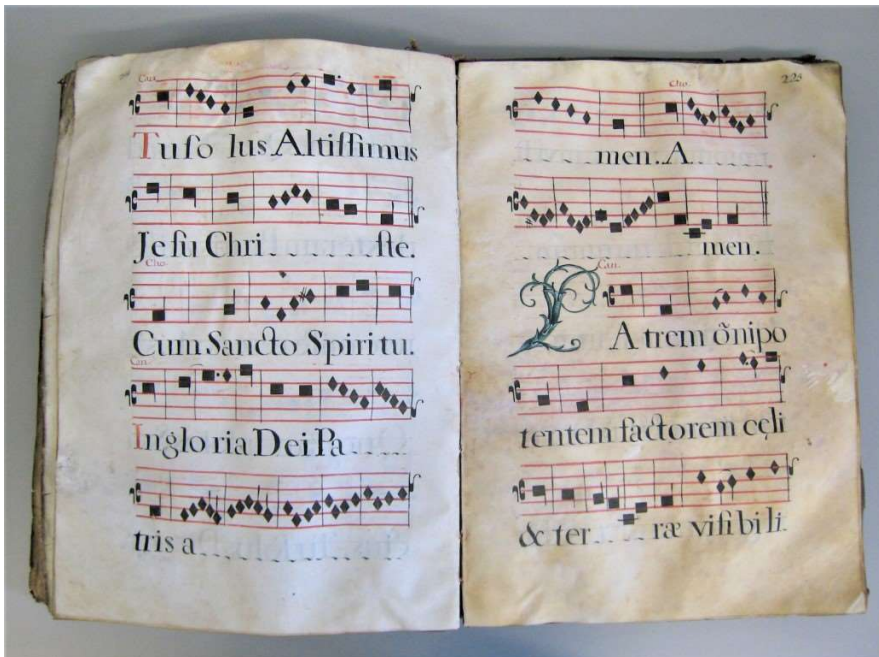 Can.
Tu so lus Altissimus
Je su Chri ste.
Cho.
Cum Sancto Spiri tu.
Can.
In glo ria Dei Pa
tris a
223
Cho.
men. A
men.
Can.
PA trem õnipo
tentem factorem cęli
& ter ræ visi bi li